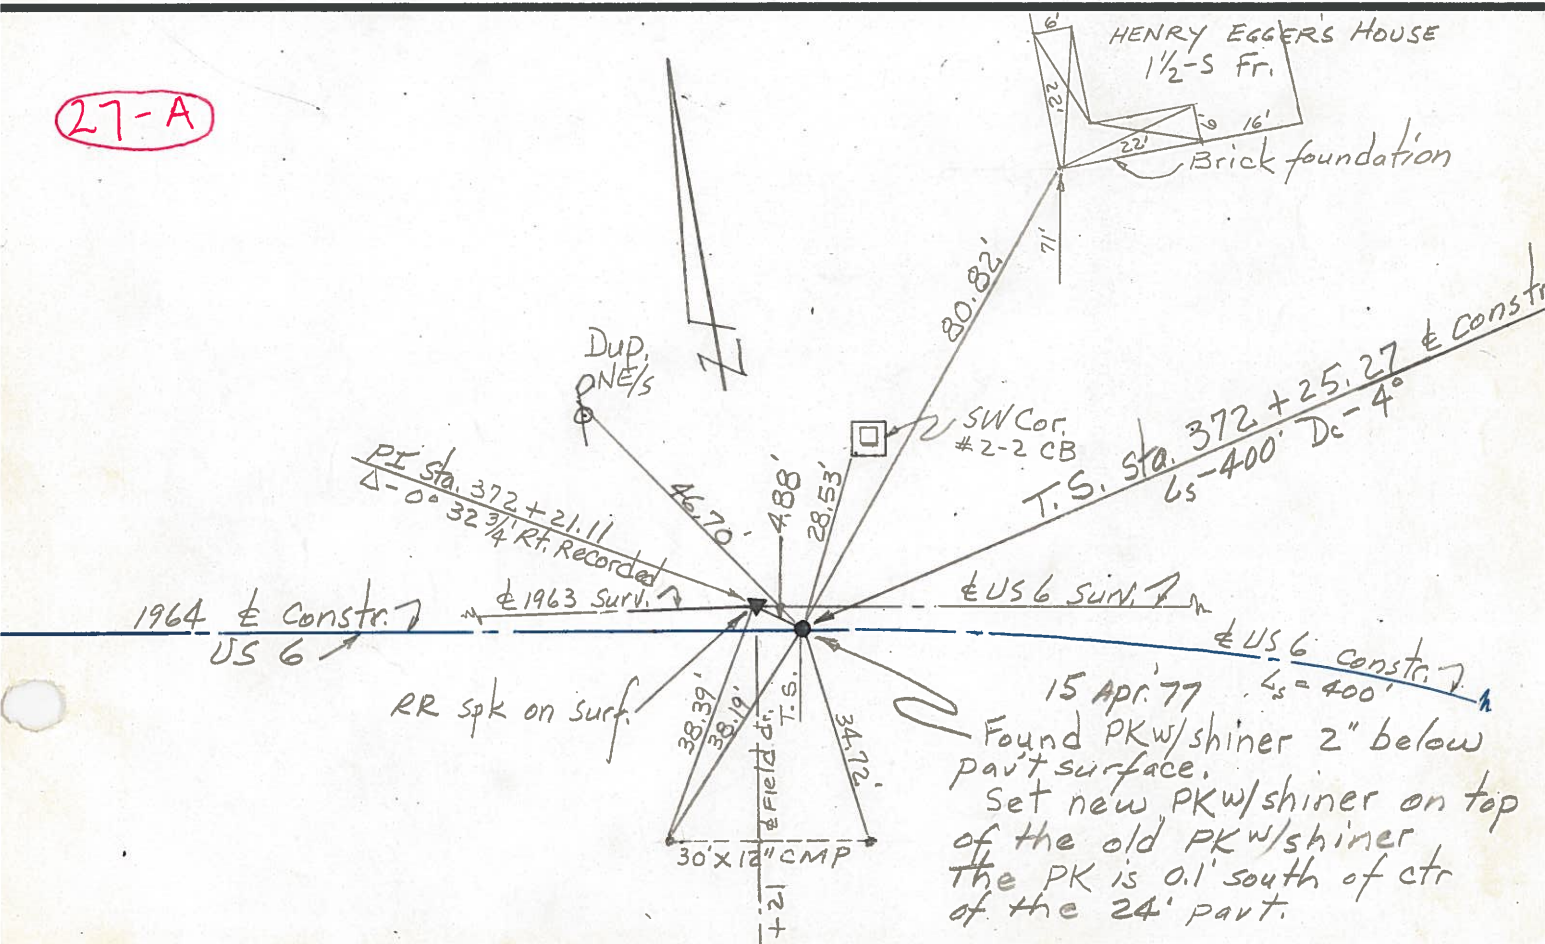 27-A
6'
HENRY EGGER'S HOUSE
1½-S Fr.
22'
22'
6'
16'
Brick foundation
71'
80.82'
Dup.
NE/s
46.70'
4.88'
28.53'
SW Cor.
#2-2 CB
T.S. Sta. 372 + 25.27 ℄ Constr.
Ls-400' Dc-4°
PI Sta. 372 + 21.11
Δ-0° 32 ¾' Rt. Recorded
℄ 1963 Surv.
℄ US 6 Surv.
1964 ℄ Constr.
US 6
℄ US 6 Constr.
Ls = 400'
RR spk on surf.
38.39'
38.19'
℄ Field dr.
T.S.
34.72'
30' X 12" CMP
+21
15 Apr. '77
Found PK w/shiner 2" below
pav't surface.
Set new PK w/shiner on top
of the old PK w/shiner
The PK is 0.1' south of ctr
of the 24' pavt.
N